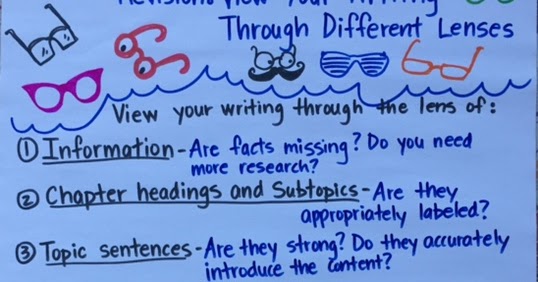 Revision: View Your Writing
Through Different Lenses
View your writing through the lens of:
① Information - Are facts missing? Do you need
more research?
② Chapter headings and Subtopics - Are they
appropriately labeled?
③ Topic sentences - Are they strong? Do they accurately
introduce the content?